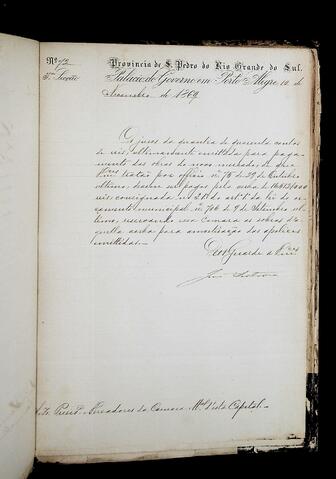 Nº 72
Provincia de S. Pedro do Rio Grande do Sul.
3ª Secção
Palacio do Governo em Porto Alegre 10 de
de 1869
Os juros da quantia de quarenta contos
de reis, ultimamente emittida para paga-
mento das obras do novo mercado, de que
tratão por officio nº 75 de 29 de Outubro
ultimo, devem ser pagos pela verba de
reis consignada no § 21 do art. 1º da lei do or-
çamento municipal nº 706 de 9 de Setembro ul-
timo, reservando essa Camara as sobras d'a-
quella verba para amortisação das apolices
emittidas.
Deos Guarde a V.mces
Vereadores da Camara M.al d'esta Capital.